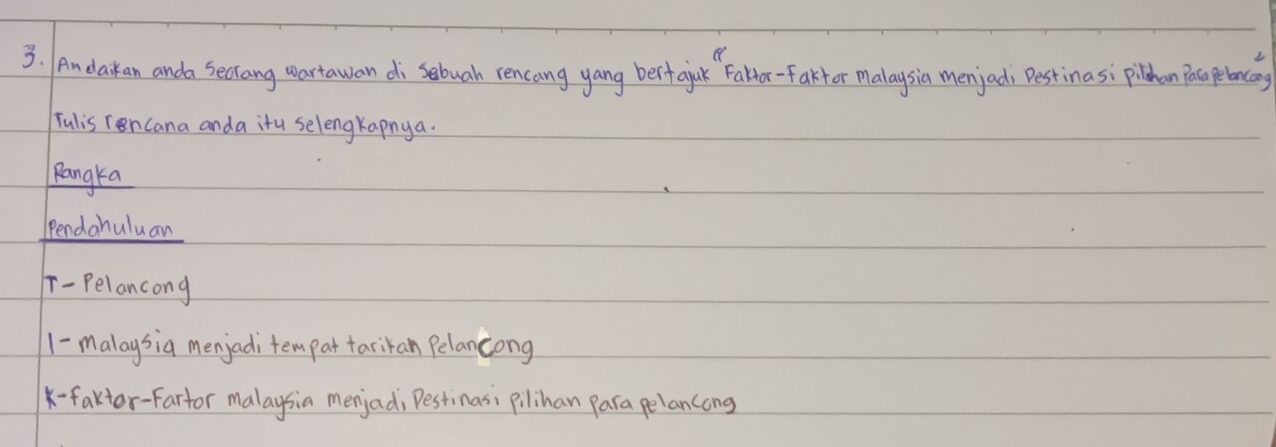 3. Andaikan anda seorang wartawan di sebuah rencang yang bertajuk "Faktor-Faktor malaysia menjadi Destinasi pilihan Para pelancong"
Tulis rencana anda itu selengkapnya.
Rangka
Pendahuluan
T - Pelancong
I - malaysia menjadi tempat tarikan Pelancong
K - faktor-Fartor malaysia menjadi Destinasi pilihan para pelancong